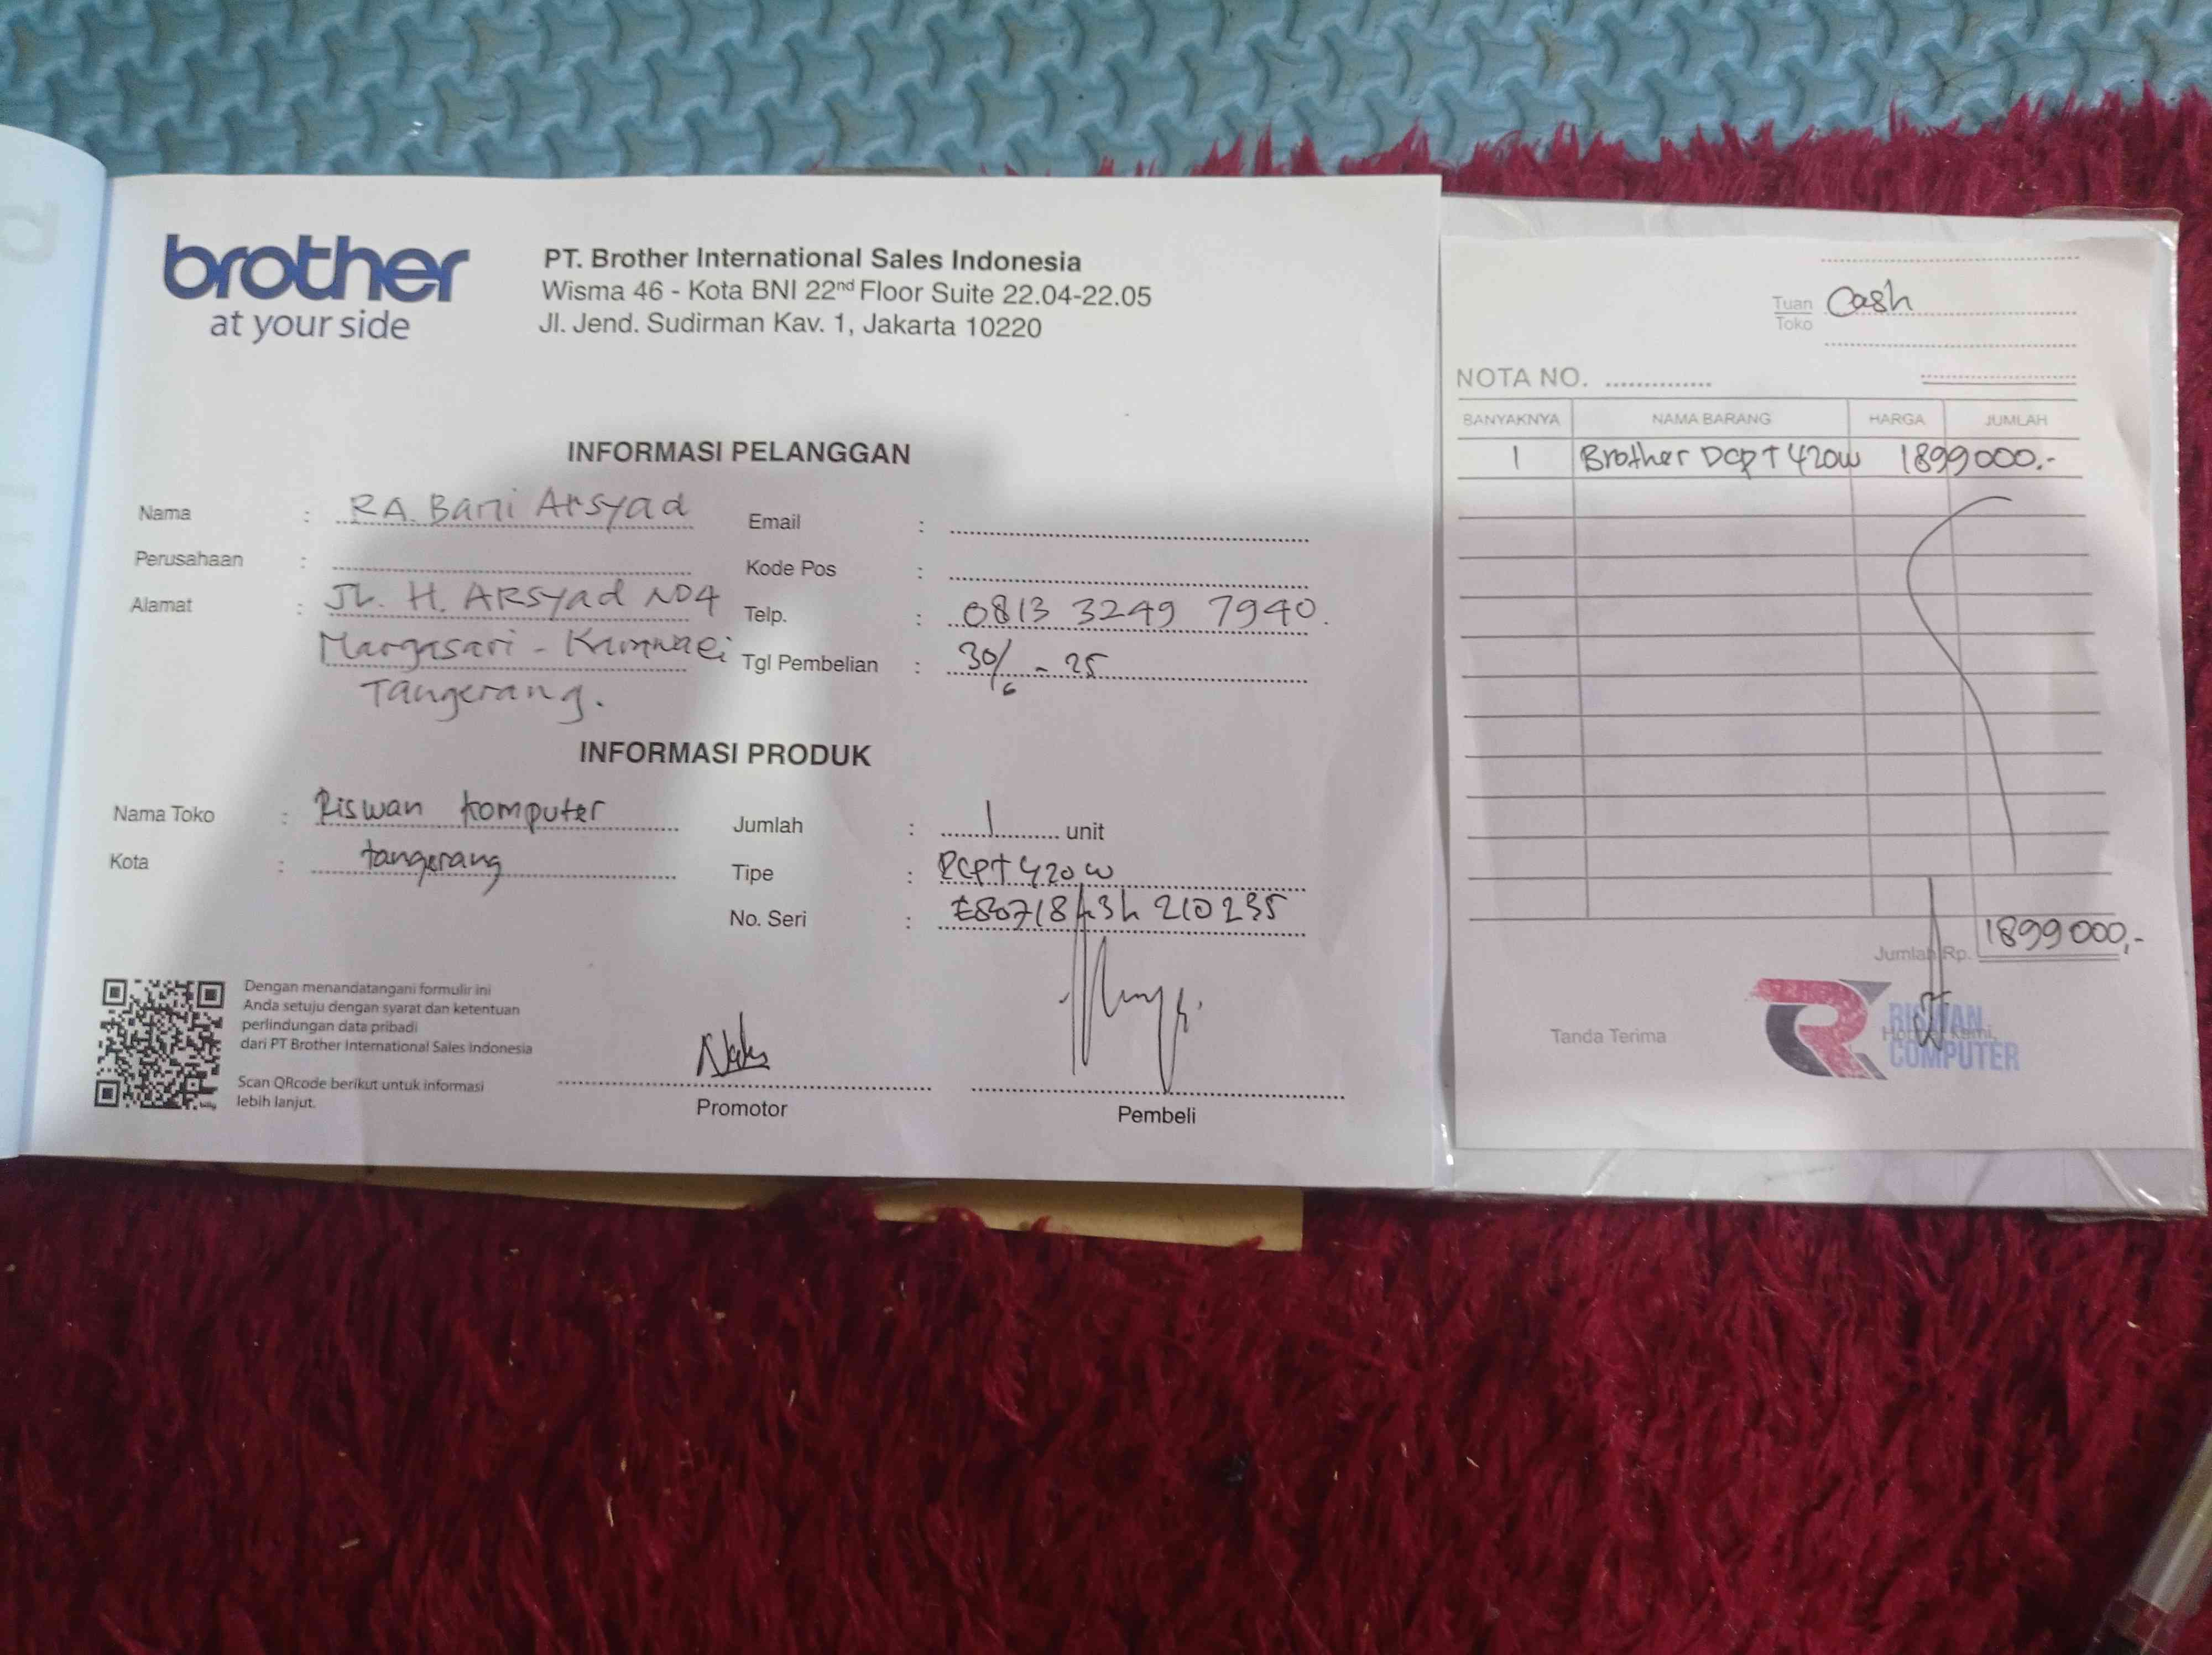 brother
at your side
PT. Brother International Sales Indonesia
Wisma 46 - Kota BNI 22nd Floor Suite 22.04-22.05
Jl. Jend. Sudirman Kav. 1, Jakarta 10220
INFORMASI PELANGGAN
Nama : RA. Bani Arsyad
Perusahaan :
Alamat : JL. H. ARSyad NO4
Margasari - Karawaci
Tangerang.
Email :
Kode Pos :
Telp. : 0813 3249 7940.
Tgl Pembelian : 30/6 - 25
INFORMASI PRODUK
Nama Toko : Riswan komputer
Kota : tangerang
Jumlah : 1 unit
Tipe : DCPT 420 W
No. Seri : 210235
Dengan menandatangani formulir ini
Anda setuju dengan syarat dan ketentuan
perlindungan data pribadi
dari PT Brother International Sales Indonesia
Scan QRcode berikut untuk informasi
lebih lanjut.
Promotor
Pembeli
Tuan
Toko
Cash
NOTA NO.
BANYAKNYA NAMA BARANG HARGA JUMLAH
1 Brother DCPT 420W 1899000.-
Jumlah Rp. 1899000,-
Tanda Terima
Hormat Kami,
RISWAN
COMPUTER